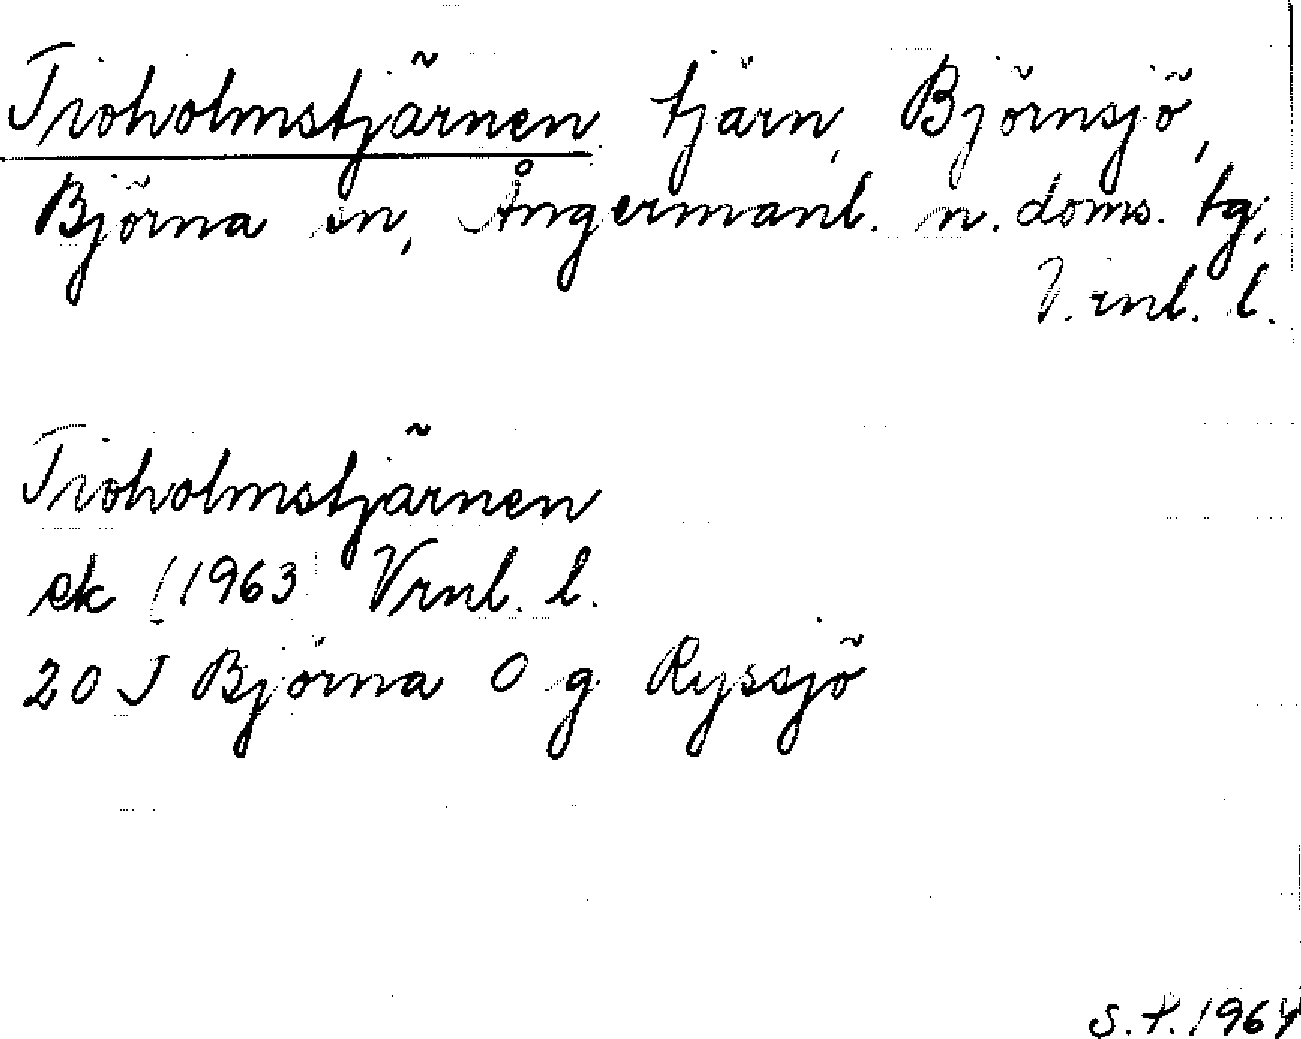 Troholmstjärnen tjärn, Björnsjö,
Björna sn, Ångermanl. n. doms. tg,
V.rnl. l.
Troholmstjärnen
ek (1963) Vrnl. l.
20 J Björna O g Ryssjö
S.F. 1964